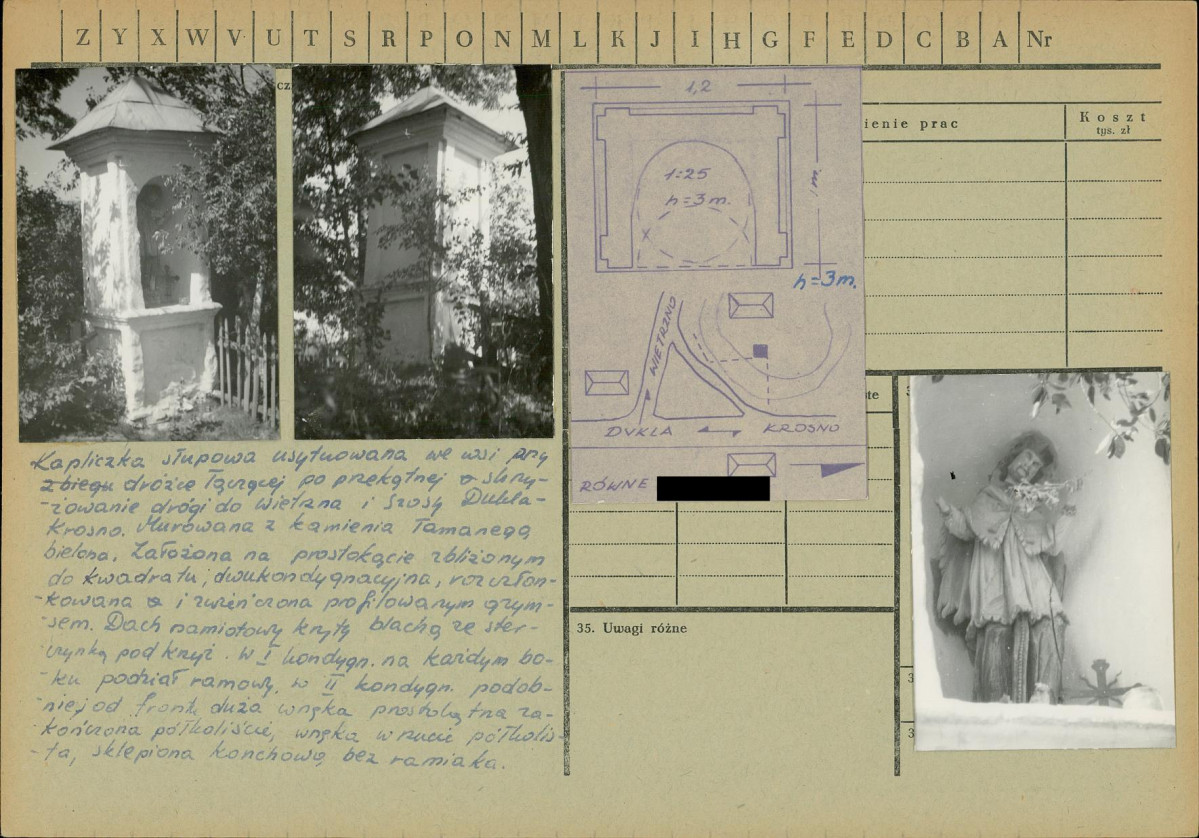 Z Y X W V U T S R P O N M L K J I H G F E D C B A Nr
cz
ienie prac
Koszt
tys. zł
te
3
3
3
1,2
1:25
h=3m.
1m.
h=3m.
WIETRZNO
DUKLA KROSNO
RÓWNE
35. Uwagi różne
Kapliczka słupowa usytuowana we wsi przy
zbiegu dróżce łączącej po przekątnej skrzy-
-żowanie drógi do Wietrzna i szosy Dukla-
Krosno. Murowana z kamienia łamanego
bielona. Założona na prostokącie zbliżonym
do kwadratu, dwukondygnacyjna, rozczłon-
-kowana i zwieńczona profilowanym gzym-
-sem. Dach namiotowy kryty blachą ze ster-
-czynką pod krzyż. W I kondygn. na każdym bo-
-ku podział ramowy, w II kondygn. podob-
-niej od frontu duża wnęka prostokątna za-
-kończona półkoliście, wnęka w rzucie półkolis-
-ta, sklepiona konchowo, bez ramiaka.